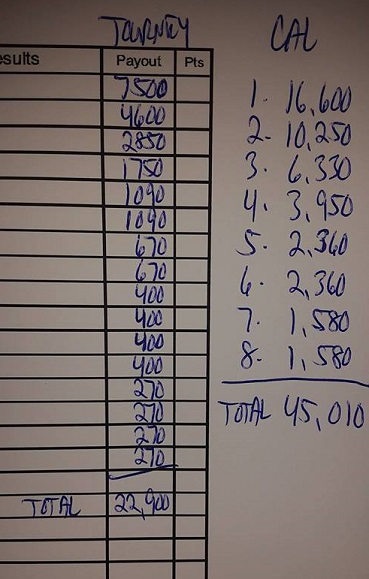 TOURNEY
esults Payout Pts
7500
4600
2850
1750
1090
1090
670
670
400
400
400
400
270
270
270
270
TOTAL 22,900
CAL
1. 16,600
2. 10,250
3. 6,330
4. 3,950
5. 2,360
6. 2,360
7. 1,580
8. 1,580
TOTAL 45,010